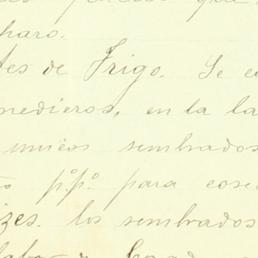 haro.
tes de Trigo. Se
medieros, en la la
unicos sembrados
p.º p.º para cose
izes. los sembrados